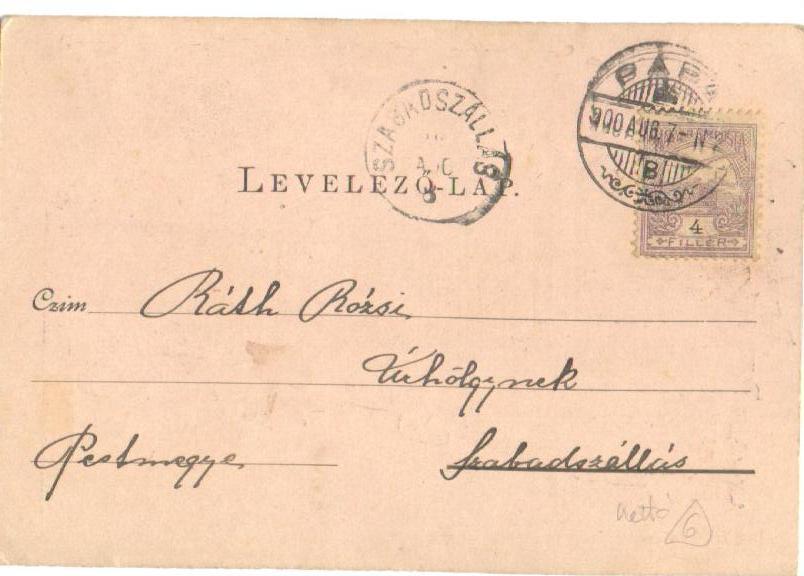 PÁP
900 AUG. 7-
B
SZABADSZÁLLÁS
AUG
8
LEVELEZŐ-LAP.
POSTA
4
FILLÉR
Czim Ráth Rózsi
Úrhölgynek
Pestmegye Szabadszállás
nettó 6